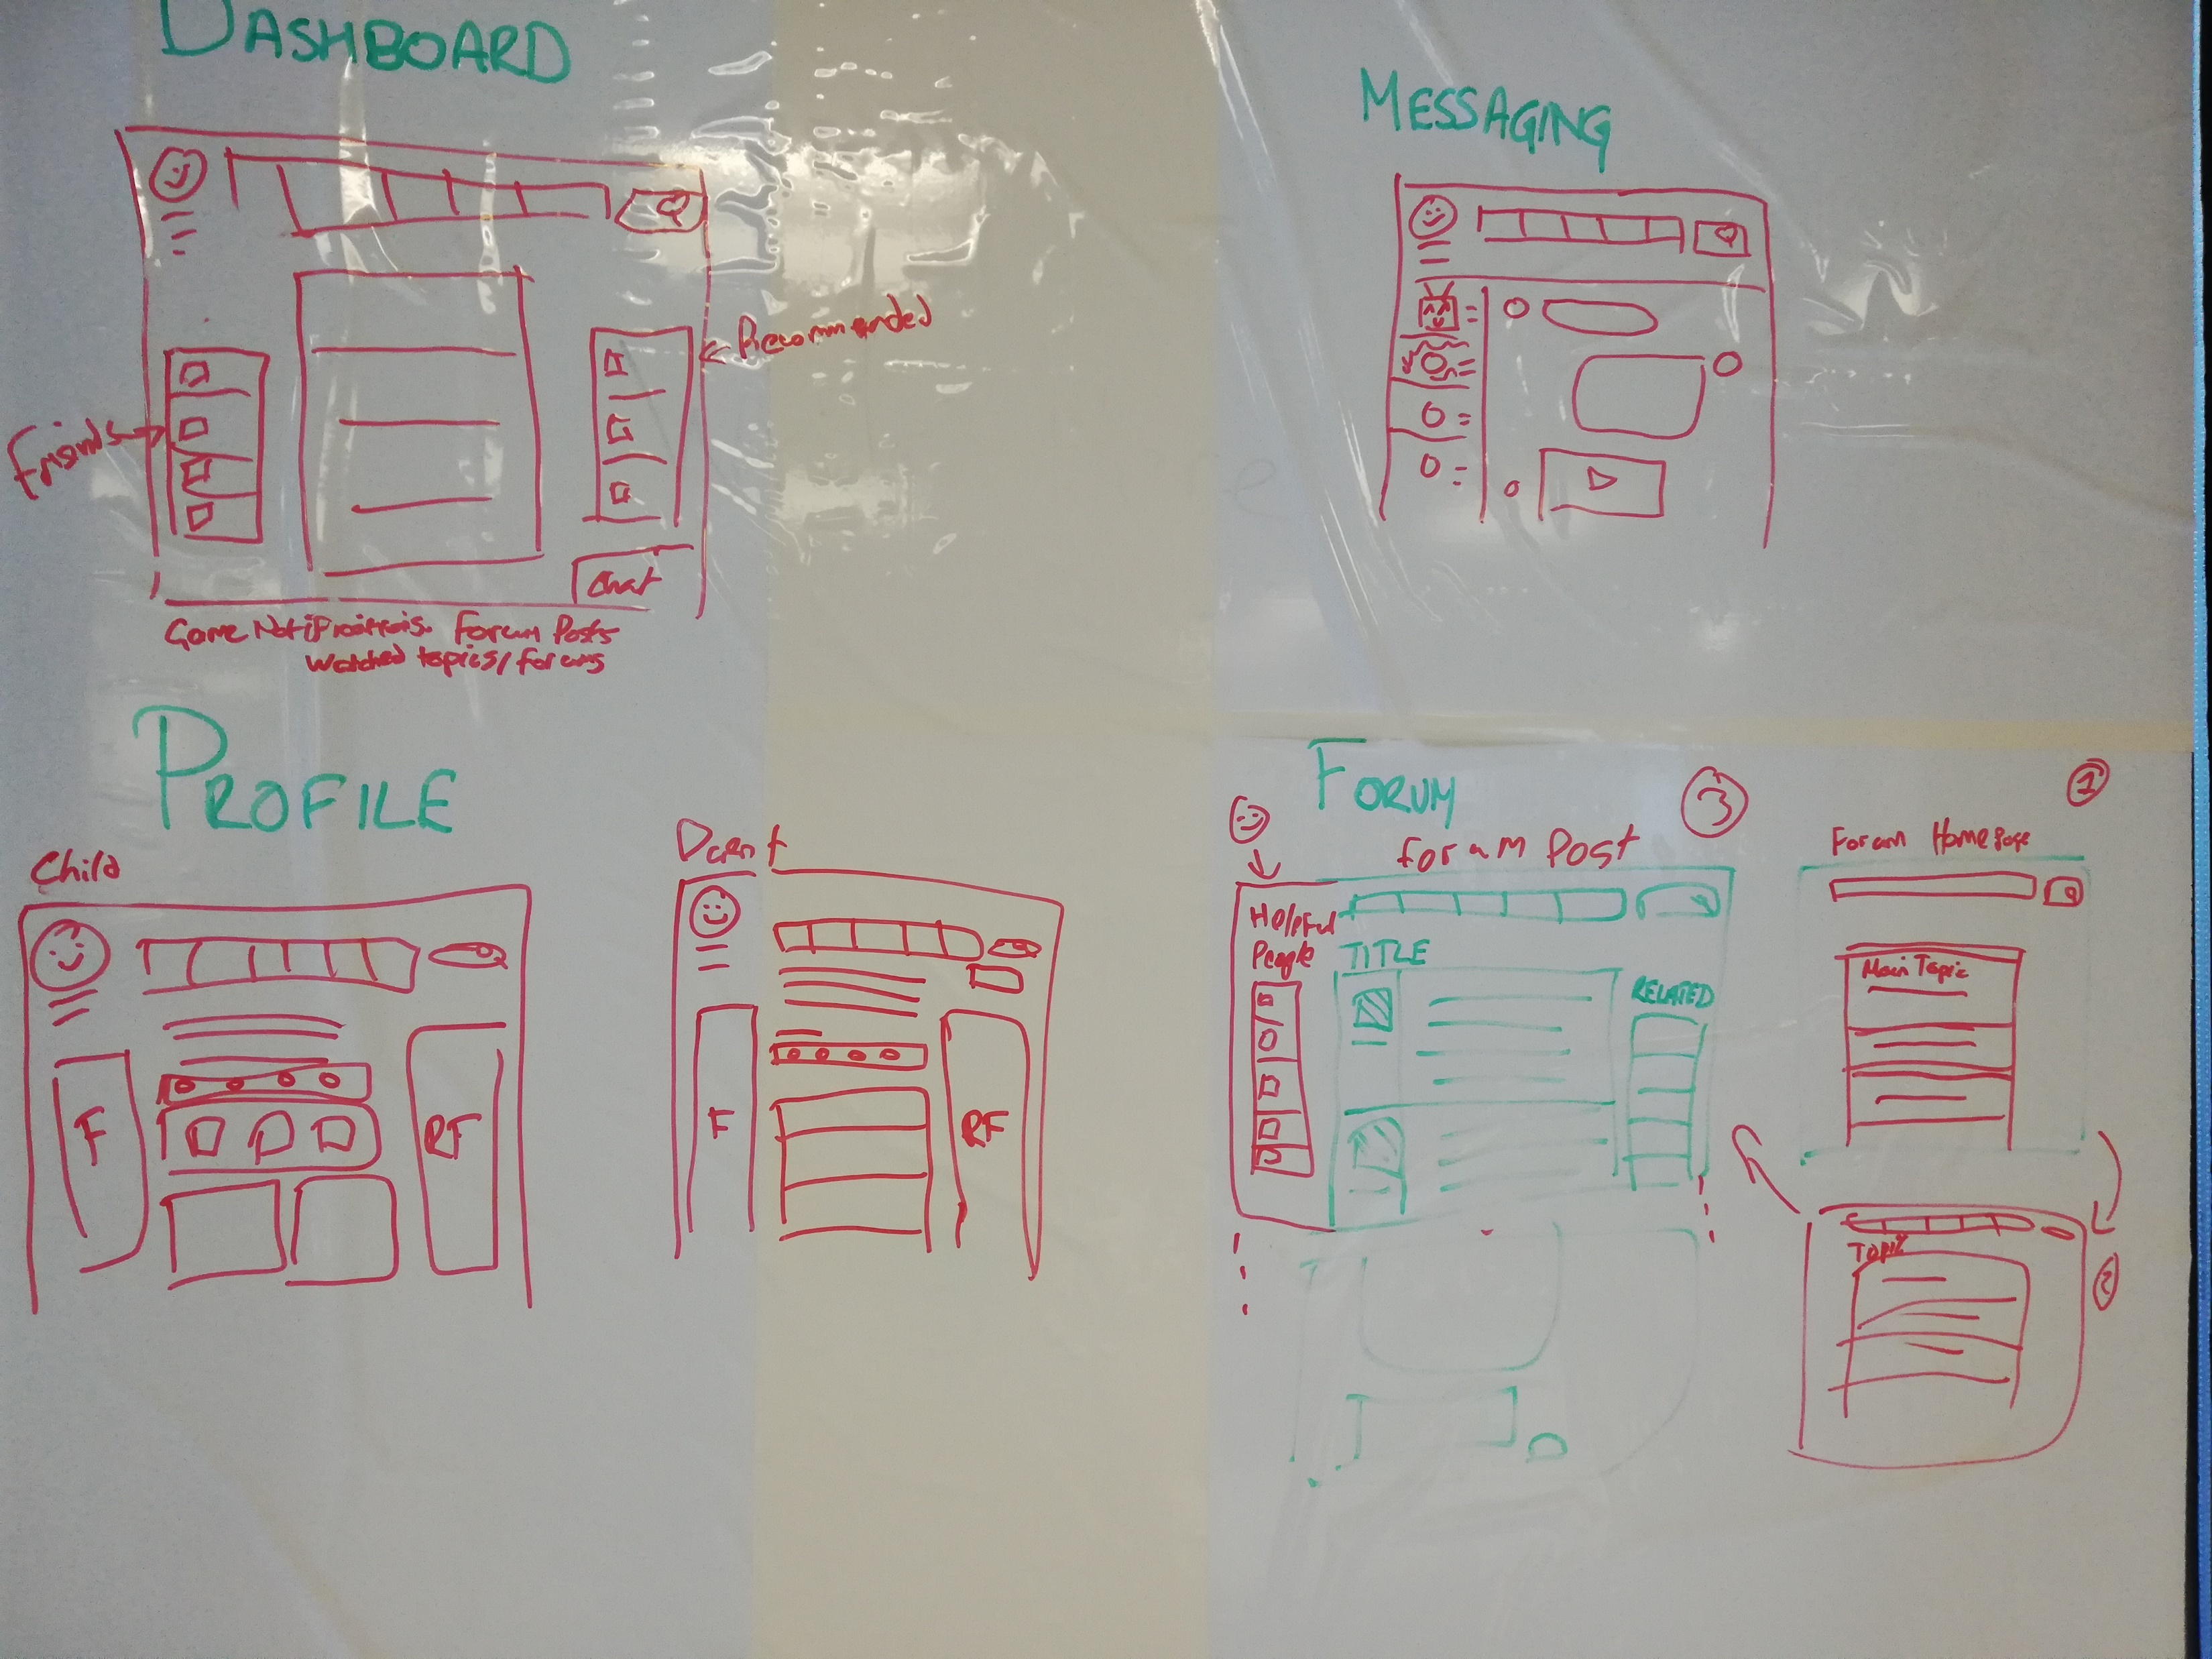 DASHBOARD
Recommended
Friends
Chat
Game Notifications. Forum Posts
Watched topics/forums
MESSAGING
PROFILE
Child
F
RF
Parnt
F
RF
FORUM
3
Forum Post
Helpful
People
TITLE
RELATED
1
Forum Homepage
Main Topic
Topic
2